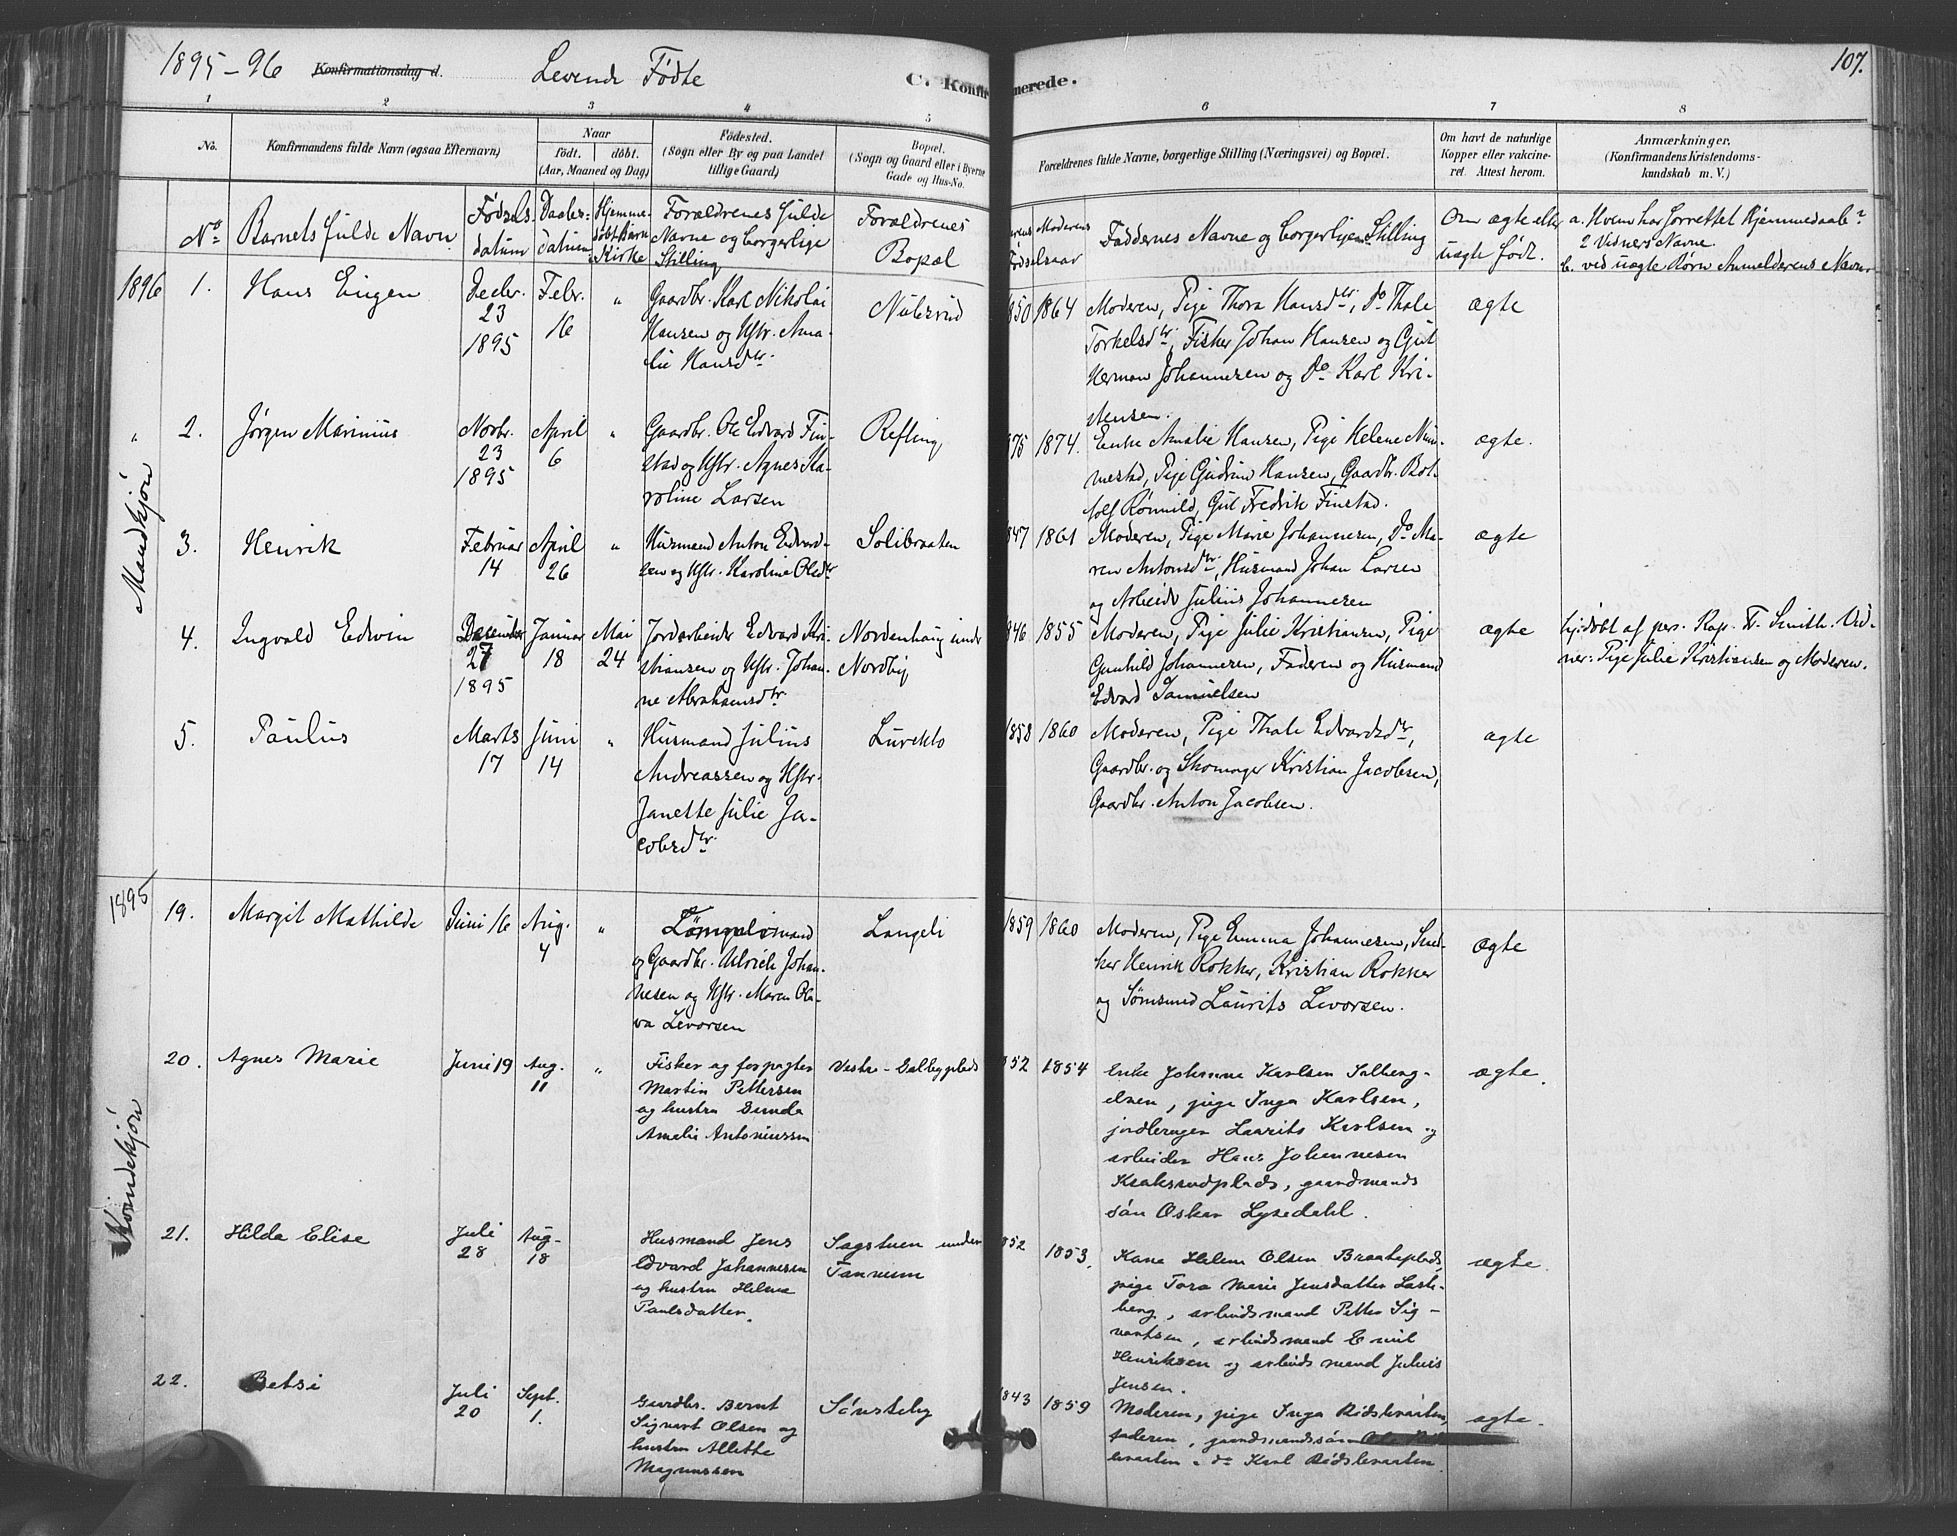 1895-96 Konfirmationsdag d. Levende Fødte C. Konfirmerede. 107.
1 2 3 4 5 6 7 8
No.
Konfirmandens fulde Navn (ogsaa Efternavn)
Naar
født. døbt.
(Aar, Maaned og Dag)
Fødested.
(Sogn eller By og paa Landet
tillige Gaard)
Bopæl.
(Sogn og Gaard eller i Byerne
Gade og Hus-No.
Forældrenes fulde Navne, borgerlige Stilling (Næringsvei) og Bopæl.
Om havt de naturlige
Kopper eller vakcine-
ret. Attest herom.
Anmærkninger.
(Konfirmandens Kristendoms-
kundskab m. V.)
No
Barnets fulde Navn
Fødsels-
datum
Daabs-
datum
Hjemme-
døbt Barn
i Kirke
Forældrenes fulde
Navne og borgerlige
Stilling
Forældrenes
Bopæl
Moderens
Fødselsaar
Faddernes Navne og borgerlige Stilling
Om ægte eller
uægte født.
a. Hvem har forrettet Hjemmedaab?
2 Vidners Navne
b. ved uægte Børn Anmelderens Navn.
1896
Mandkjøn
1.
Hans Eugen
Decbr.
23
1895
Febr.
16
"
Gaardbr. Karl Nikolai
Hansen og Hstr. Ama-
lie Hansdtr.
Nubsrud
1850
1864
Moderen, Pige Thora Hansdtr, Do Thale
Torkelsdtr, Fisker Johan Hansen og Gut
Herman Johannesen og Do Karl Kri-
stensen.
ægte
"
2.
Jørgen Marinius
Novbr.
23
1895
April
6
"
Gaardbr. Ole Edvard Fin-
stad og Hstr. Agnes Ka-
roline Larsen
Refling
1875
1874.
Enke Amalie Hansen, Pige Helene Nim-
mestad, Pige Gudrun Hansen, Gaardbr. Bot-
tolf Rømuld, Gut Fredrik Finstad.
ægte.
3.
Henrik
Februar
14
April
26
"
Husmand Anton Edvard-
sen og Hstr. Karoline Olsdtr
Solibraaten
1847
1861
Moderen, Pige Marie Johannesen, Do Ma-
ren Antonsdtr, Husmand Johan Larsen
og Arbeide Julius Johannesen
ægte
4.
Ingvald Edvin
December
27
1895
Januar
18
Mai
24
Jordarbeider Edvard Kri-
stiansen og Hstr. Johan-
ne Abrahamsdtr.
Nordenhaug under
Nordby
1846
1855
Moderen, Pige Julie Kristiansen, Pige
Gunhild Johannesen, Faderen og Husmand
Edvard Samuelsen
ægte
hjdøbt af pers. Kap. F. Smith. Vid-
ner: Pige Julie Kristiansen og Moderen.
5.
Paulus
Marts
17
Juni
14
"
Husmand Julius
Andreassen og Hstr.
Janette Julie Ja-
cobsdtr.
Lurekto
1858
1860
Moderen, Pige Thale Edvardsdtr,
Gaardbr. og Skomager Kristian Jacobsen,
Gaardbr. Anton Jacobsen.
ægte
1895
Kvindekjøn
19.
Margit Mathilde
Juni 16
Aug.
4
"
og Gaardbr. Ulrich Johan-
nesen og Hstr. Maren Ola-
va Levorsen
Langeli
1859
1860
Moderen, Pige Emma Johannesen, Sned-
ker Henrik Rokker, Kristian Rokker
og Sømand Laurits Levorsen.
ægte
20.
Agnes Marie
Juni 19
Aug.
11
"
Fisker og forpagter
Martin Pettersen
og hustru Gunda
Amalie Antoniussen
Vestre-Dalbyplads
1852
1854
Enke Johanne Karlsen Solberg-
elven, pige Inga Karlsen,
jordbruger Laurits Karlsen og
arbeider Hans Johannesen
Krakerudplads, gaardmands
søn Oskar Lysedahl.
ægte.
21.
Hilda Elise
Juli
28
Aug.
18
Husmand Jens
Edvard Johannesen
og hustru Helene
Paulsdatter.
Sagstuen under
Tannum
1852
1853.
Kone Helene Olsen Braateplads,
pige Tora Marie Jensdatter Lark-
berg, arbeidsmand Petter Sig-
vartsen, arbeidsmand Emil
Henriksen og arbeidsmand Julius
Jensen.
ægte.
22.
Betsi
Juli
20
Sept.
1.
Gaardbr. Bernt
Sigvart Olsen og
hustru Allette
Magnussen
Sønsteby
1843
1859
Moderen, pige Inga Rødsbraaten,
faderen, gaardmandssøn
braaten. do Karl Rødsbraaten
ægte.